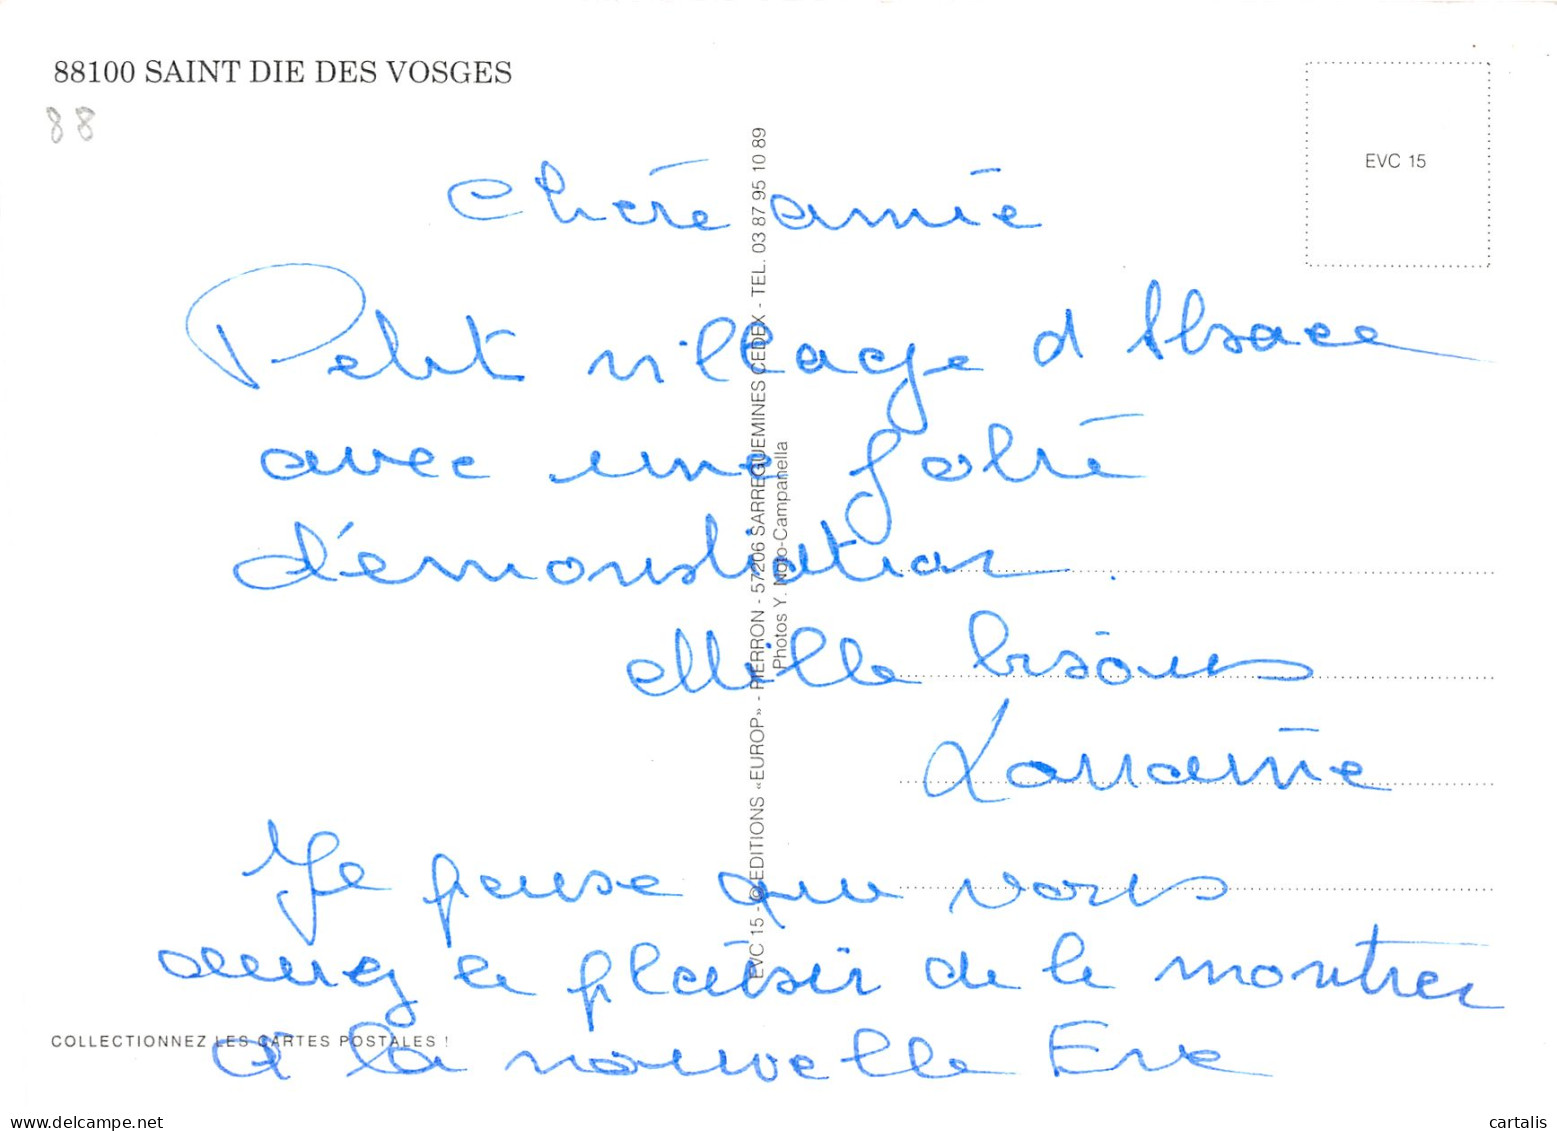 88100 SAINT DIE DES VOSGES
88
EVC 15
Chère amie
Petit village d'Alsace
avec une jolie
démonstration.
Mille bisous
Lorraine
Je pense que vous
aurez le plaisir de le montrer
à la nouvelle Eve
COLLECTIONNEZ LES CARTES POSTALES !
EVC 15 - © EDITIONS «EUROP» - PIERRON - 57206 SARREGUEMINES CEDEX - TEL. 03 87 95 10 89
Photos Y. Noto-Campanella
delcampe.net
cartalis